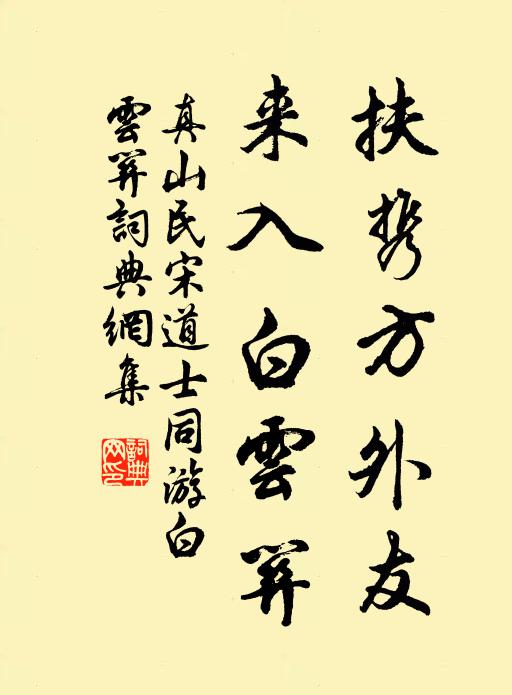 扶携方外友
来入白雲关
真山民宋道士同游白
雲关詞典網集
詞典网印